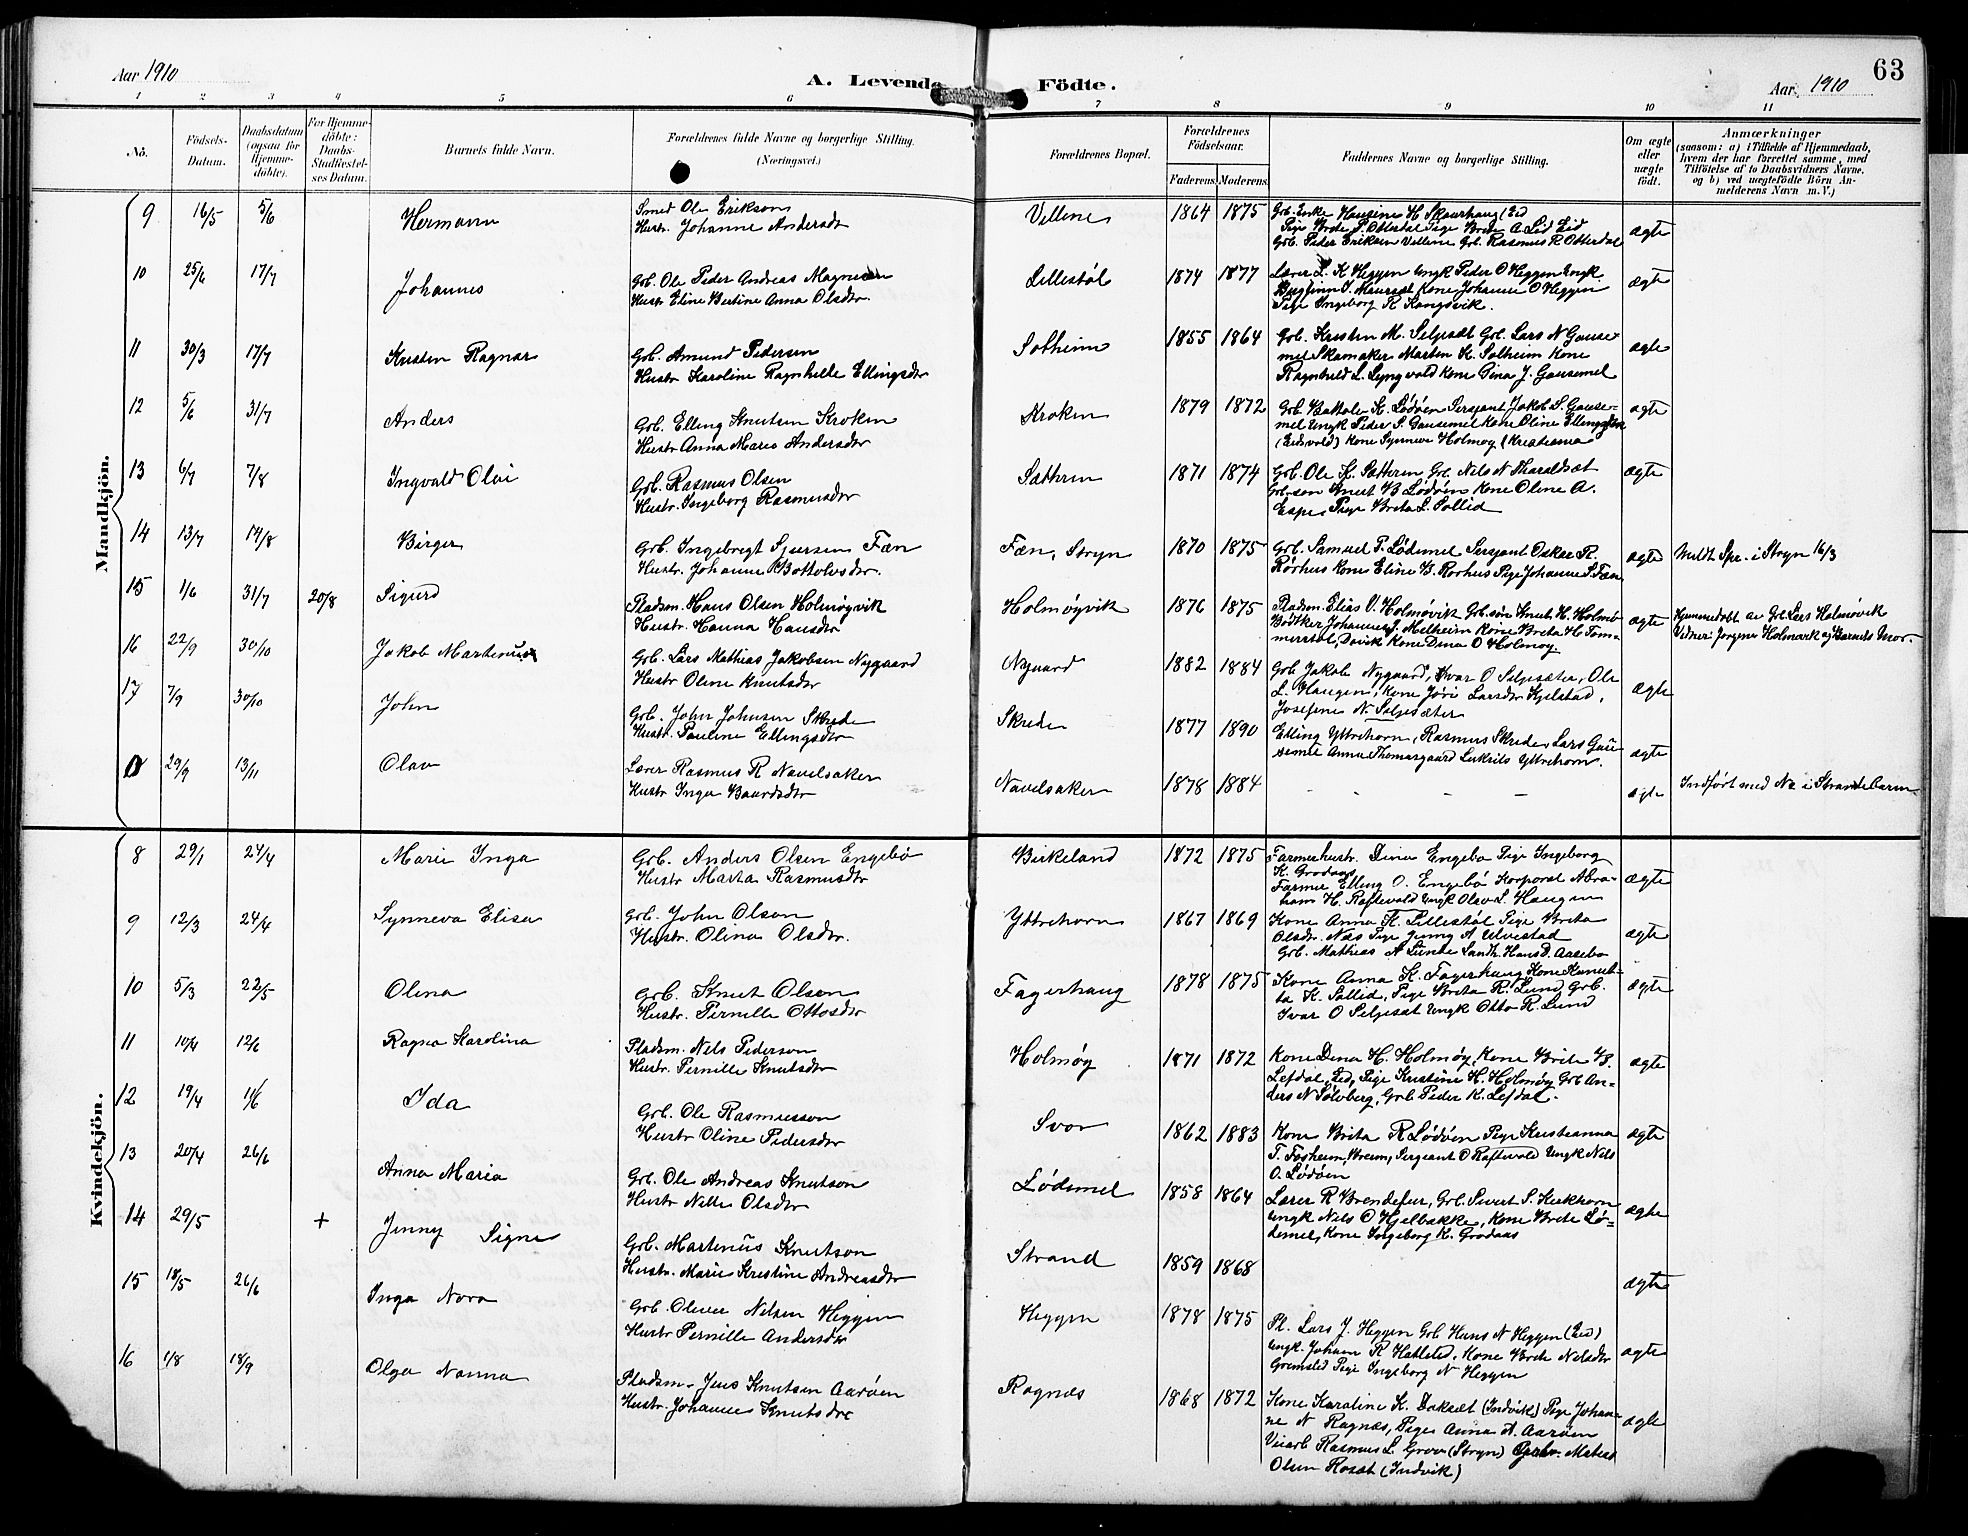 63
Aar 1910
A. Levende Födte.
Aar 1910
1 2 3 4 5 6 7 8 9 10 11
No.
Födsels-Datum.
Daabsdatum (ogsaa for Hjemmedöbte).
For Hjemmedöbte: Daabs-Stadfæstelses Datum.
Barnets fulde Navn.
Forældrenes fulde Navne og borgerlige Stilling.
(Næringsvei.)
Forældrenes Bopæl.
Forældrenes Födselsaar.
Faderens. Moderens.
Faddernes Navne og borgerlige Stilling.
Om ægte eller uægte födt.
Anmærkninger
(saasom: a) i Tilfælde af Hjemmedaab, hvem der har forrettet samme, med Tilföielse af to Daabsvidners Navne, og b) ved uægtefödte Börn Anmelderens Navn m. V.)
Mandkjön.
9 16/5 5/6 Hermann
Smed Ole Eriksen
Hustr. Johanne Andersdtr
Vellene 1864 1875
Grb. Enke Hansine H Skaarhaug (Eid
Pige Brite P. Otterdal Pige Brite A Lid Eid
Grb. Peder Eriksen Vellene Grb. Rasmus R Otterdal
ægte
10 25/6 17/7 Johannes
Grb. Ole Peder Andreas Magnusen
Hustr Eline Bertine Anna Olsdtr.
Lillestøl 1874 1877
Lærer L. K Heggen Ungk Peder O Heggen Ungk
J. Maurset Kone Johanne O Heggen
Pige Ingeborg R Kongsvik.
ægte
11 30/3 17/7 Kristen Ragnar
Grb. Amund Pedersen
Hustr Karoline Ragnhilde Ellingsdtr
Solheim 1855 1864
Grb. Kristen M. Seljeset Grb. Lars N Gausemel
Skomaker Marten K. Solheim Kone
Ragnhild L. Lyngvold Kone Gina J. Gausemel
ægte
12 5/6 31/7 Anders
Grb. Elling Knutsen Kroken
Hustr Anna Marie Andersdtr
Kroken 1879 1872
Grb. Bottolv K. Lødøen Sersjant Jakob S. Gausemel
Ungk Peder S. Gausemel Kone Oline Ellingsdtr
(Eidsvold) Kone Synneve Holmøy (Kristiania
ægte
13 6/7 7/8 Ingvald Olai
Grb. Rasmus Olsen
Hustr. Ingeborg Rasmusdtr
Sætren 1871 1874
Grb. Ole K. Sætren Grb. Nils N Tharaldset
Grb.søn Knut B Lødøen Kone Oline A.
Espe Pige Brita L. Sollid
ægte
14 13/7 14/8 Birger
Grb. Ingebrigt Sjursen Fæn
Hustr. Johanne Bottolvsdtr.
Fæn, Stryn 1870 1875
Grb. Samuel T. Lødemel Sersjant Oskar R.
Rørhus Kone Eline B. Rorhus Pige Johanne S. Fæn
ægte
Meldt Spr. i Stryn 16/3
15 1/6 31/7 20/8 Sigurd
Pladsm. Hans Olsen Holmøyvik
Hustr. Hanna Hansdtr
Holmøyvik 1876 1875
Pladsm. Elias O. Holmøvik Grb.søn Knut H. Holmø
Bødtker Johannes J. Melheim Kone Brita H. Tommerstøl,
Davik Kone Dina O Holmøy.
ægte
Hjemmedøbt av Grb. Lars Holmøvik
Vidner: Jørgine Holmøvik og Barnets Mor.
16 22/9 30/10 Jakob Martinus
Grb. Lars Mathias Jakobsen Nygaard
Hustr Oline Knutsdtr
Nygaard 1882 1884
Grb Jakob Nygaard, Ivar O Seljesæter, Ole
L. Haugen, Kone Jøri Larsdtr Kjelstad,
Josefine N. Seljesæter
ægte
17 7/9 30/10 John
Grb. John Johnsen Skrede
Hustr. Pauline Ellingsdtr
Skrede 1877 1890
Elling Yttrehorn, Rasmus Skrede, Lars Gausemel
Anna Thomasgaard Lukrits Yttrehorn.
ægte
29/9 13/11 Olav
Lærer Rasmus R Navelsaker
Hustr Inga Baardsdtr
Navelsaker 1878 1884
— — —
ægte
Indført med No i Strandebarm
Kvindekjön.
8 29/1 24/4 Marie Inga
Grb. Anders Olsen Engebø
Hustr Marta Rasmusdtr
Birkeland 1872 1875
Farmerhustr. Dina Engebø Pige Ingeborg
K. Grodaas
Farmer Elling O. Engebø Korporal Abraham
H. Raftevold Ungk Olav L. Haugen
ægte
9 12/3 24/4 Synneva Elisa
Grb. John Olson
Hustr. Olina Olsdtr.
Yttrehorn 1867 1869
Kone Anna K. Lillestøl Pige Brita
Olsdtr. Nos Pige Jenny A Ulvestad
Grb. Mathias A Lunde Landh. Hans D. Aasebø
ægte
10 5/3 22/5 Olena
Grb. Knut Olsen
Hustr. Pernille Ottosdtr
Fagerhaug 1878 1875
Kone Anna K. Fagerhaug Kone
K. Sollid, Pige Brita R. Lund Grb.
Ivar O Seljeset Ungk Otto R. Lund
ægte
11 10/4 12/6 Ragna Karolina
Pladsm. Nils Pederson
Hustr. Pernille Knutsdtr
Holmøy 1871 1872
Kone Dina H. Holmøy, Kone Brite B.
Lefdal, Eid, Pige Kristine H. Holmøy Grb Anders
N Sølvberg, Grb Peder K. Lefdal.
ægte
12 19/4 1/6 Ida
Grb. Ole Rasmusson
Hustr Oline Pedersdtr
Svor 1862 1883
Kone Brita R Lødøen Pige Kristianna
T. Fosheim, Breim, Sergeant O Raftevold Ungk Nils
O. Lødøen
ægte
13 20/4 26/6 Anna Maria
Grb. Ole Andreas Knutson
Hustr Nille Olsdtr
Lødemel 1858 1864
Lærer R Brendefur, Grb. Sivert S. Kirkhorn
Ungk Nils O Hjelbakke, Kone Brite Lødemel,
Kone Ingeborg K. Grodaas
ægte
14 29/5 + Jenny Signe
Grb. Martenüs Knutson
Hustr. Marie Kristine Andreasdtr
Strand 1859 1868
ægte
15 18/5 26/6 Inga Nora
Grb Oliver Nilsen Heggen
Hustr Pernille Andersdtr
Heggen 1878 1875
Pl. Lars J. Heggen Grb Hans N Heggen (Eid)
Ungk. Johan R Hatlelid, Kone Brite Nilsdtr
Grimslid Pige Ingeborg N Heggen
ægte
16 1/8 18/9 Olga Nanna
Pladsm. Jens Knutsen Aarøen
Hustr. Johanne Knutsdtr
Ragnes 1868 1872
Kone Karoline K. Dokset (Indvik) Pige Johanne
N Ragnæs, Pige Anna A. Aarøen
Veiarb Rasmus L. Grov (Stryn) Grbr. Matias
Olsen Roset (Indvik)
ægte